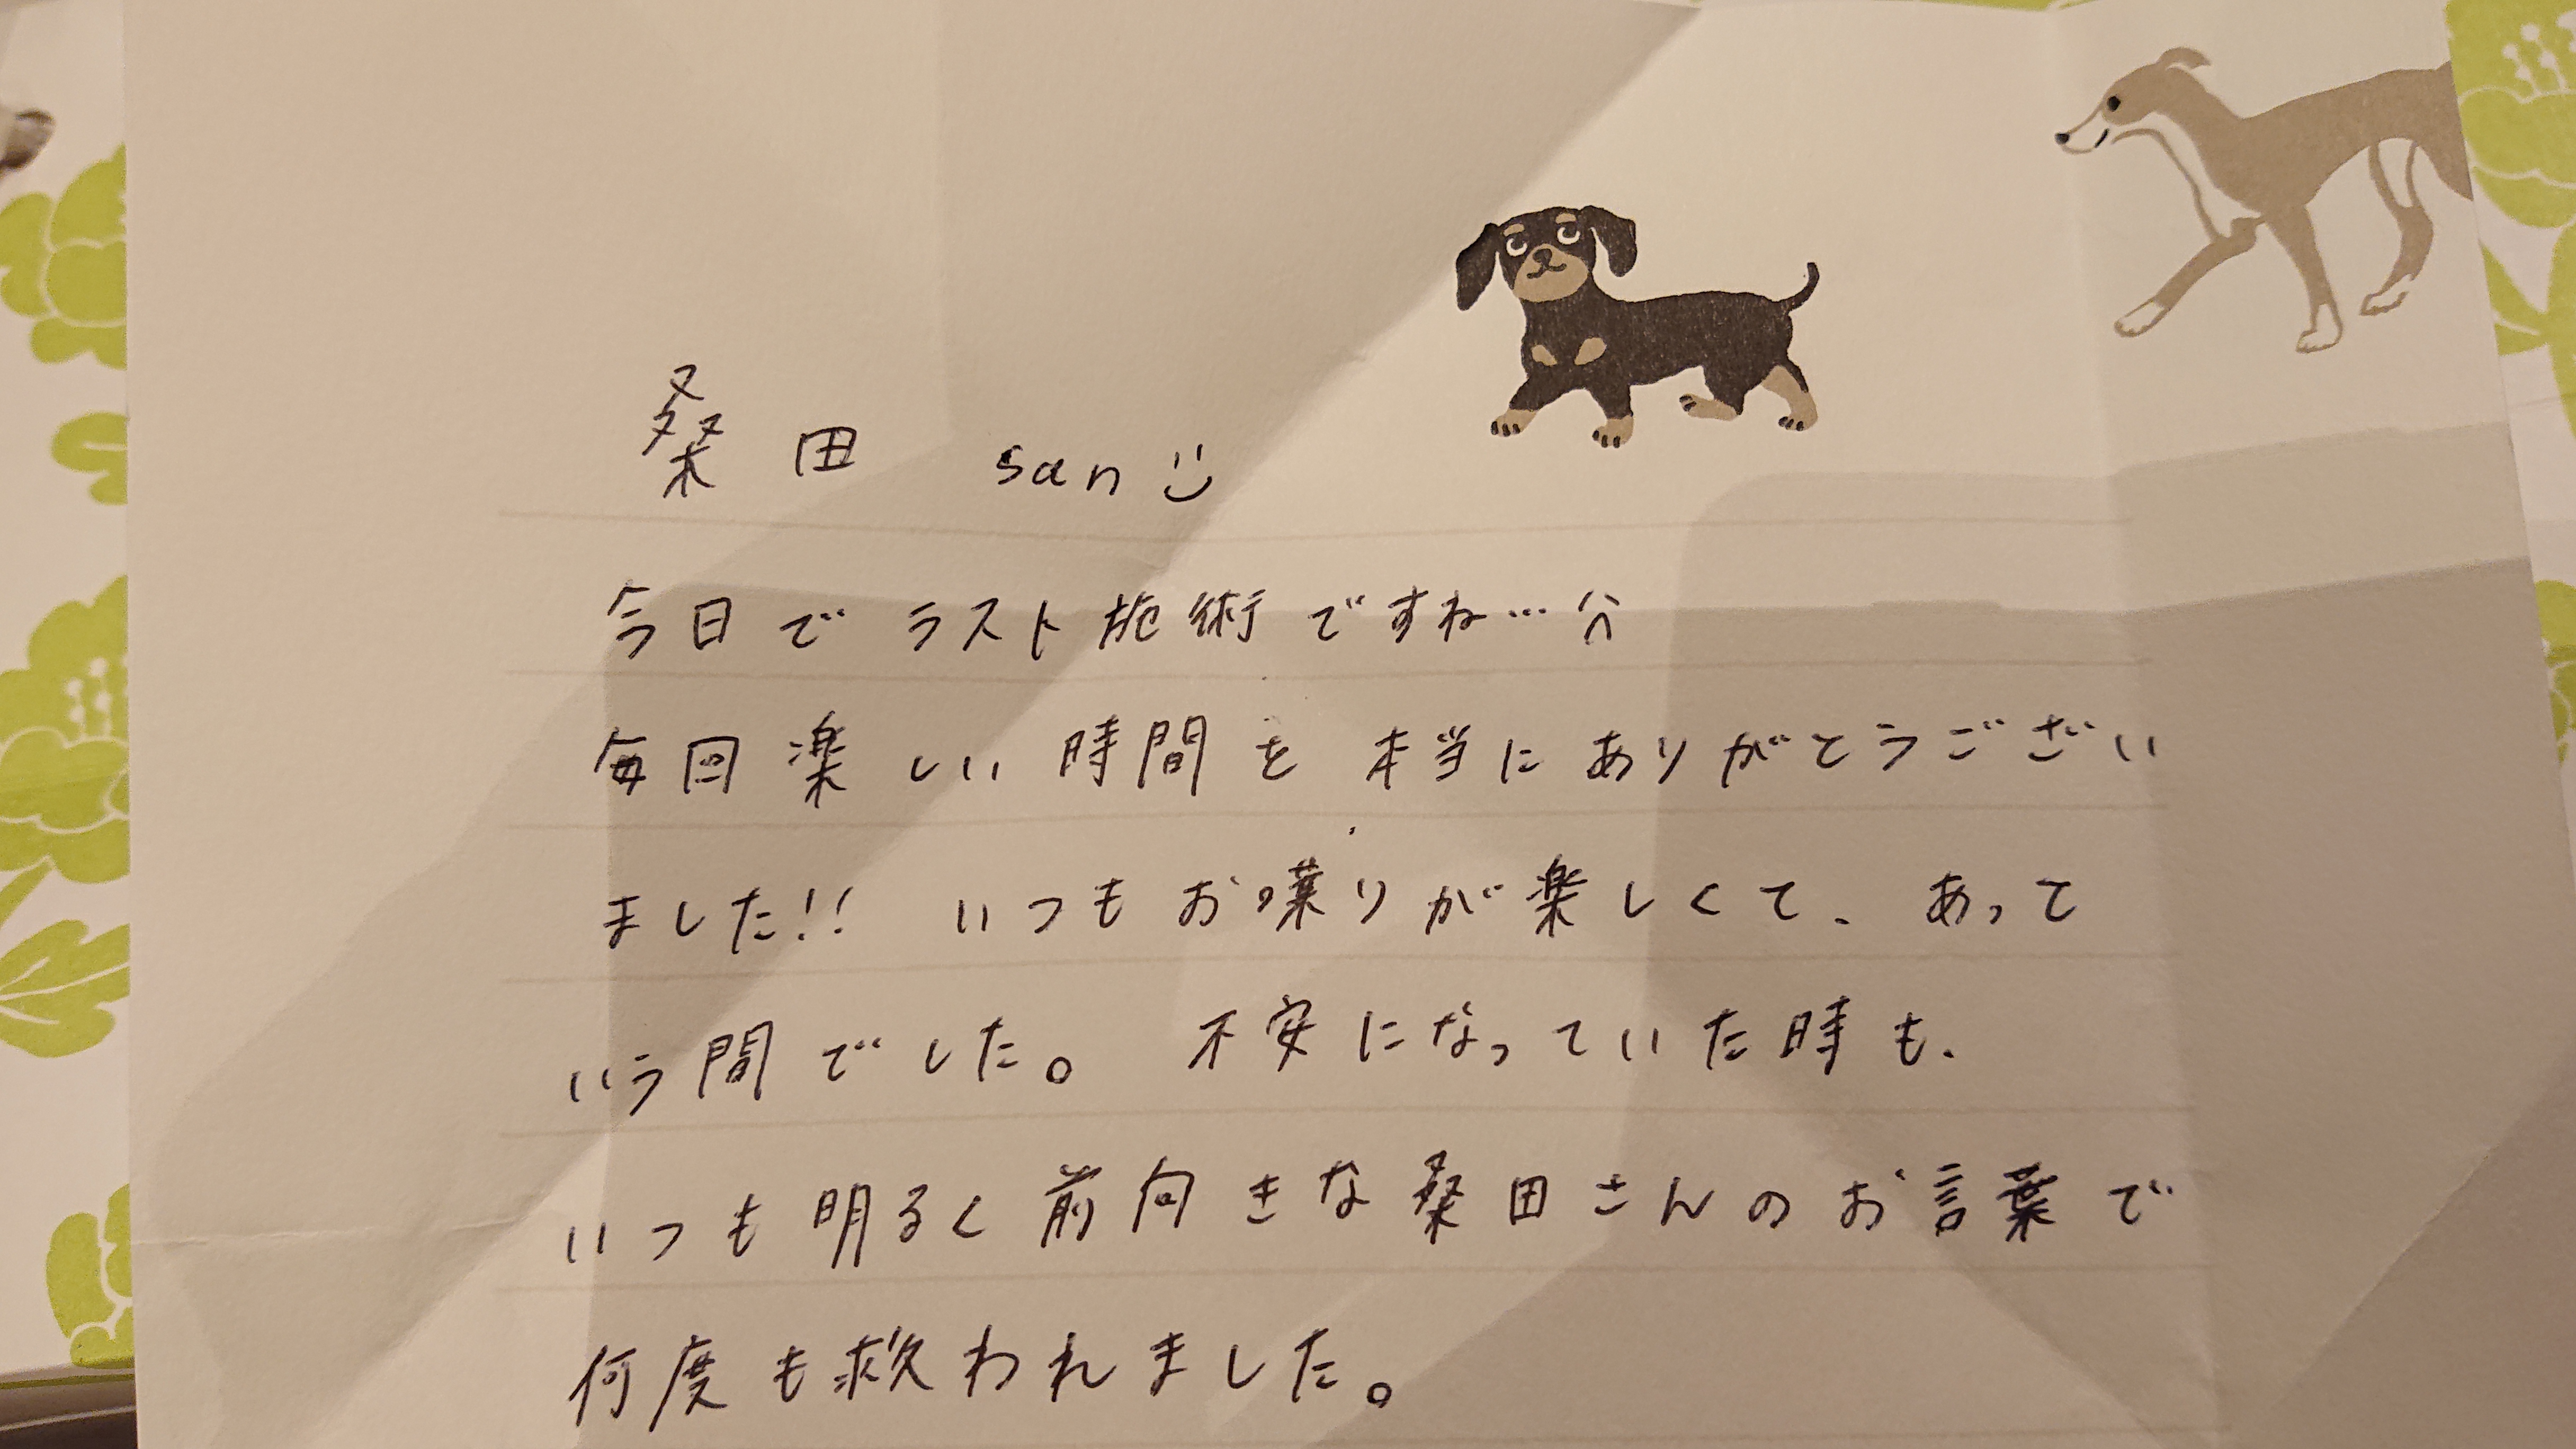 桑田 san
今日でラスト施術ですね…
毎回楽しい時間を本当にありがとうござい
ました!! いつもお喋りが楽しくて、あって
いう間でした。 不安になっていた時も、
いつも明るく前向きな桑田さんのお言葉で
何度も救われました。